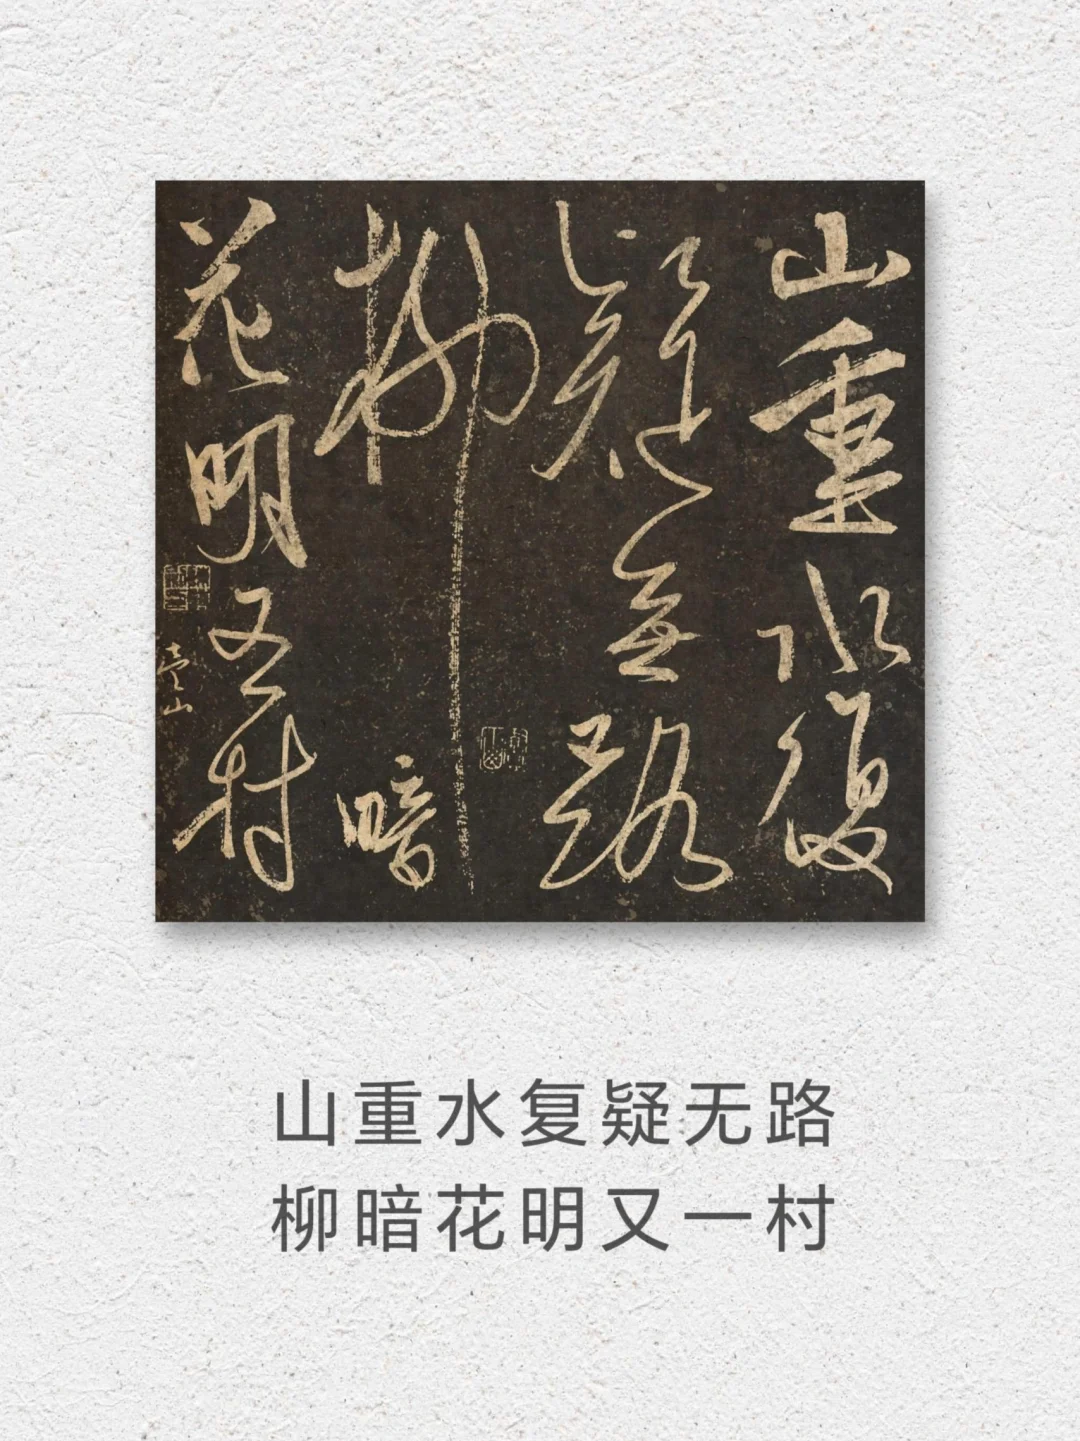 山重水復
疑無路
柳暗
花明又一村
壹山
山重水复疑无路
柳暗花明又一村